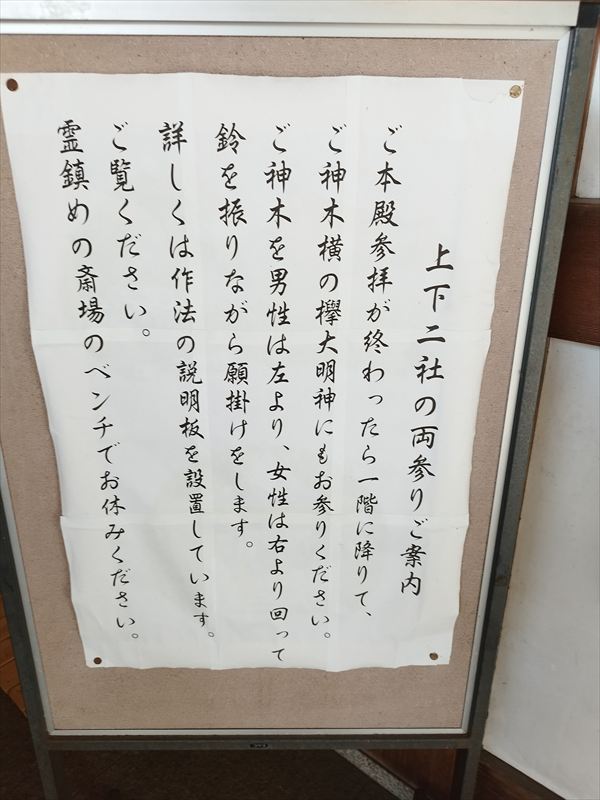 上下二社の両参りご案内
ご本殿参拝が終わったら一階に降りて、
ご神木横の欅大明神にもお参りください。
ご神木を男性は左より、女性は右より回って
鈴を振りながら願掛けをします。
詳しくは作法の説明板を設置しています。
ご覧ください。
霊鎮めの斎場のベンチでお休みください。